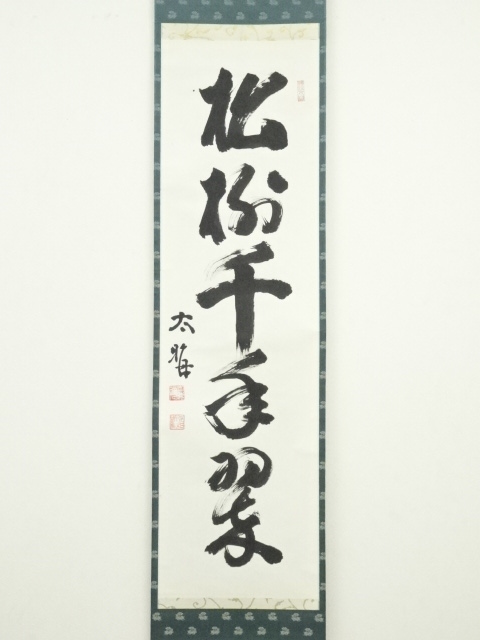 松樹千年翠
太